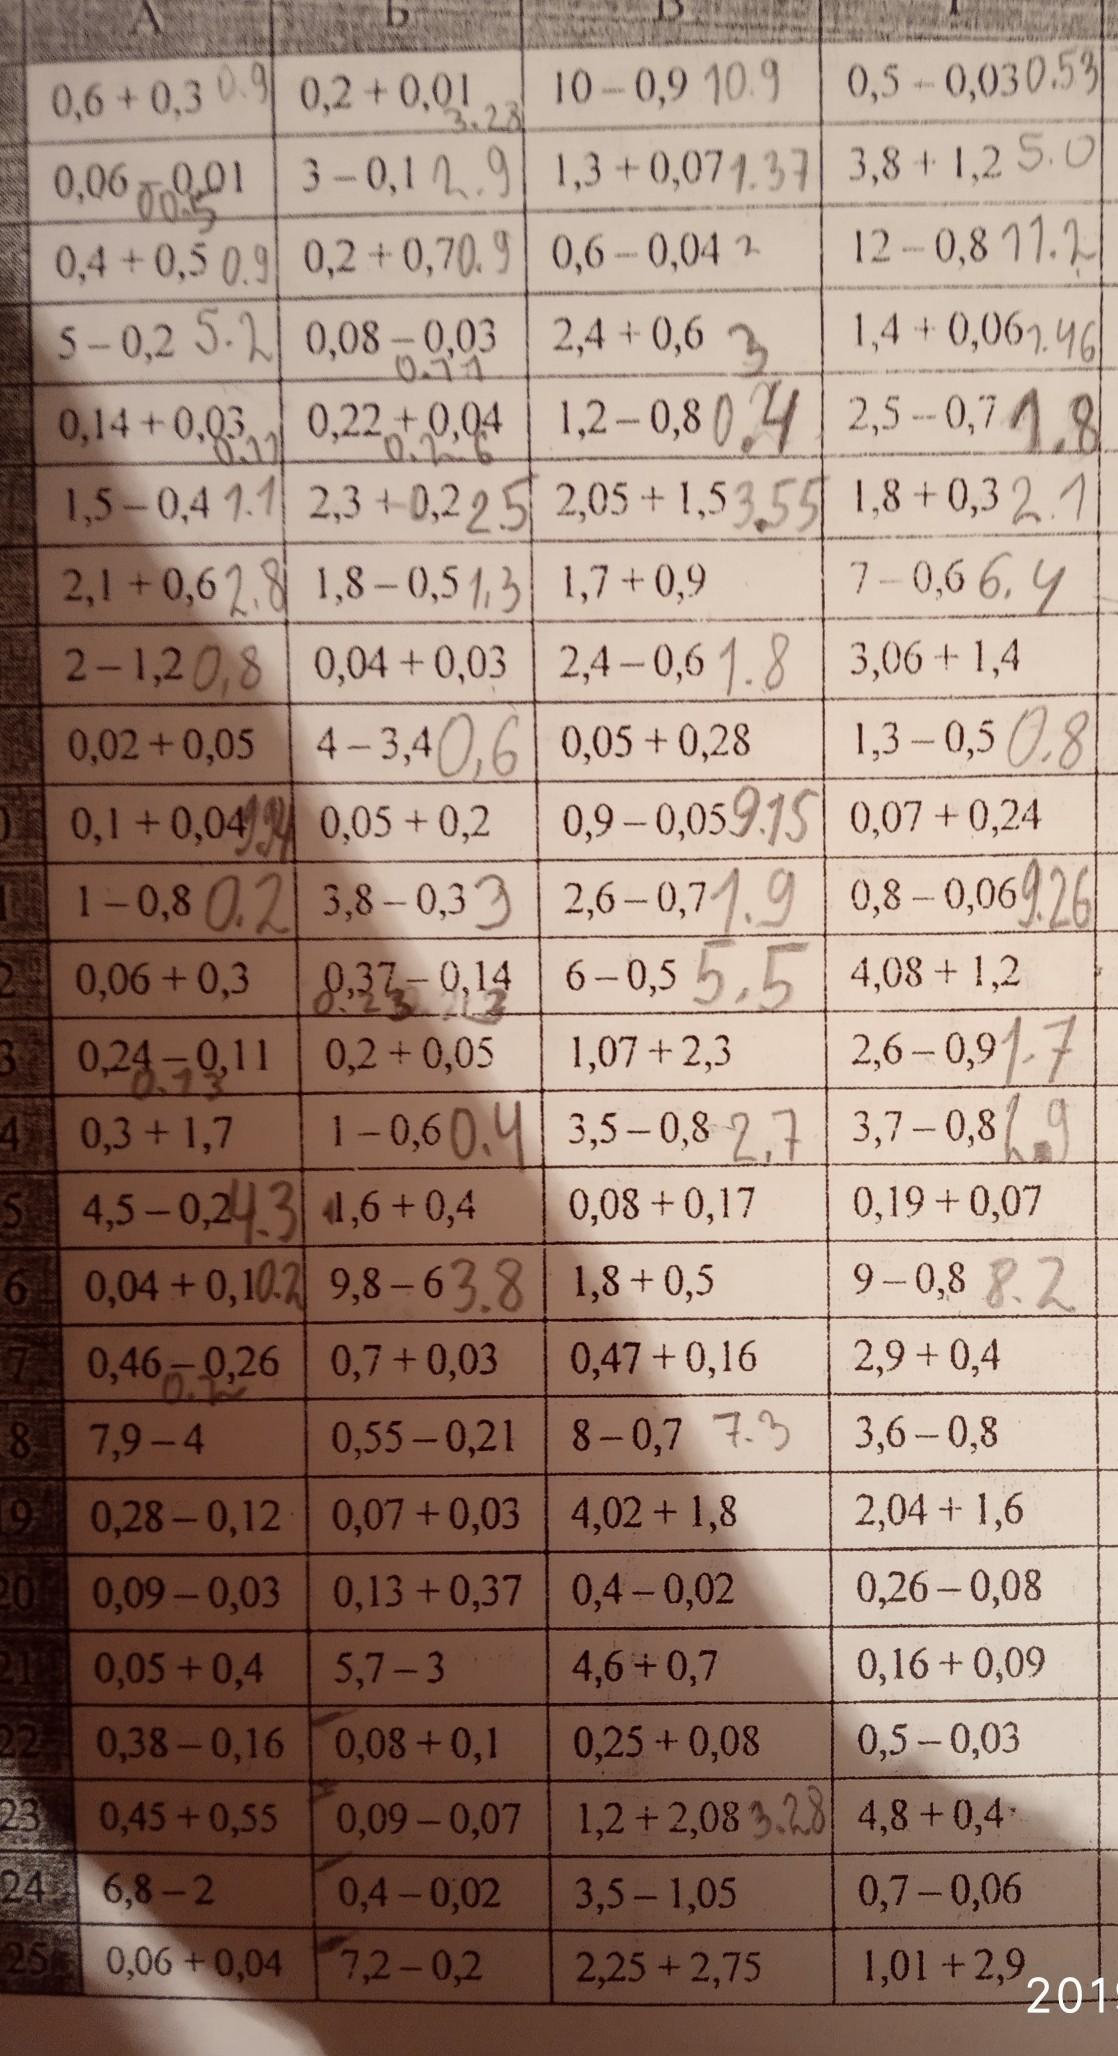 А Б В Г
0,6 + 0,3 0.9 0,2 + 0,01 3.28 10 – 0,9 10.9 0,5 – 0,03 0.53
0,06 – 0,01 00.5 3 – 0,1 2.9 1,3 + 0,07 1.37 3,8 + 1,2 5.0
0,4 + 0,5 0.9 0,2 + 0,7 0.9 0,6 – 0,04 2 12 – 0,8 11.2
5 – 0,2 5.2 0,08 – 0,03 0.11 2,4 + 0,6 3 1,4 + 0,06 1.46
0,14 + 0,03 0.17 0,22 + 0,04 0.26 1,2 – 0,8 0.4 2,5 – 0,7 1.8
1,5 – 0,4 1.1 2,3 + 0,2 2.5 2,05 + 1,5 3.55 1,8 + 0,3 2.1
2,1 + 0,6 2.8 1,8 – 0,5 1,3 1,7 + 0,9 7 – 0,6 6.4
2 – 1,2 0,8 0,04 + 0,03 2,4 – 0,6 1.8 3,06 + 1,4
0,02 + 0,05 4 – 3,4 0,6 0,05 + 0,28 1,3 – 0,5 0.8
0,1 + 0,04 0,05 + 0,2 0,9 – 0,05 9.15 0,07 + 0,24
1 – 0,8 0.2 3,8 – 0,3 3 2,6 – 0,7 1.9 0,8 – 0,06 9.26
2 0,06 + 0,3 0,37 – 0,14 0.23 6 – 0,5 5.5 4,08 + 1,2
3 0,24 – 0,11 0.13 0,2 + 0,05 1,07 + 2,3 2,6 – 0,9 1.7
4 0,3 + 1,7 1 – 0,6 0.4 3,5 – 0,8 2.7 3,7 – 0,8 2.9
5 4,5 – 0,2 4.3 1,6 + 0,4 0,08 + 0,17 0,19 + 0,07
6 0,04 + 0,1 0.2 9,8 – 6 3.8 1,8 + 0,5 9 – 0,8 8.2
7 0,46 – 0,26 0.2 0,7 + 0,03 0,47 + 0,16 2,9 + 0,4
8 7,9 – 4 0,55 – 0,21 8 – 0,7 7.3 3,6 – 0,8
19 0,28 – 0,12 0,07 + 0,03 4,02 + 1,8 2,04 + 1,6
20 0,09 – 0,03 0,13 + 0,37 0,4 – 0,02 0,26 – 0,08
21 0,05 + 0,4 5,7 – 3 4,6 + 0,7 0,16 + 0,09
22 0,38 – 0,16 0,08 + 0,1 0,25 + 0,08 0,5 – 0,03
23 0,45 + 0,55 0,09 – 0,07 1,2 + 2,08 3.28 4,8 + 0,4
24 6,8 – 2 0,4 – 0,02 3,5 – 1,05 0,7 – 0,06
25 0,06 + 0,04 7,2 – 0,2 2,25 + 2,75 1,01 + 2,9
201